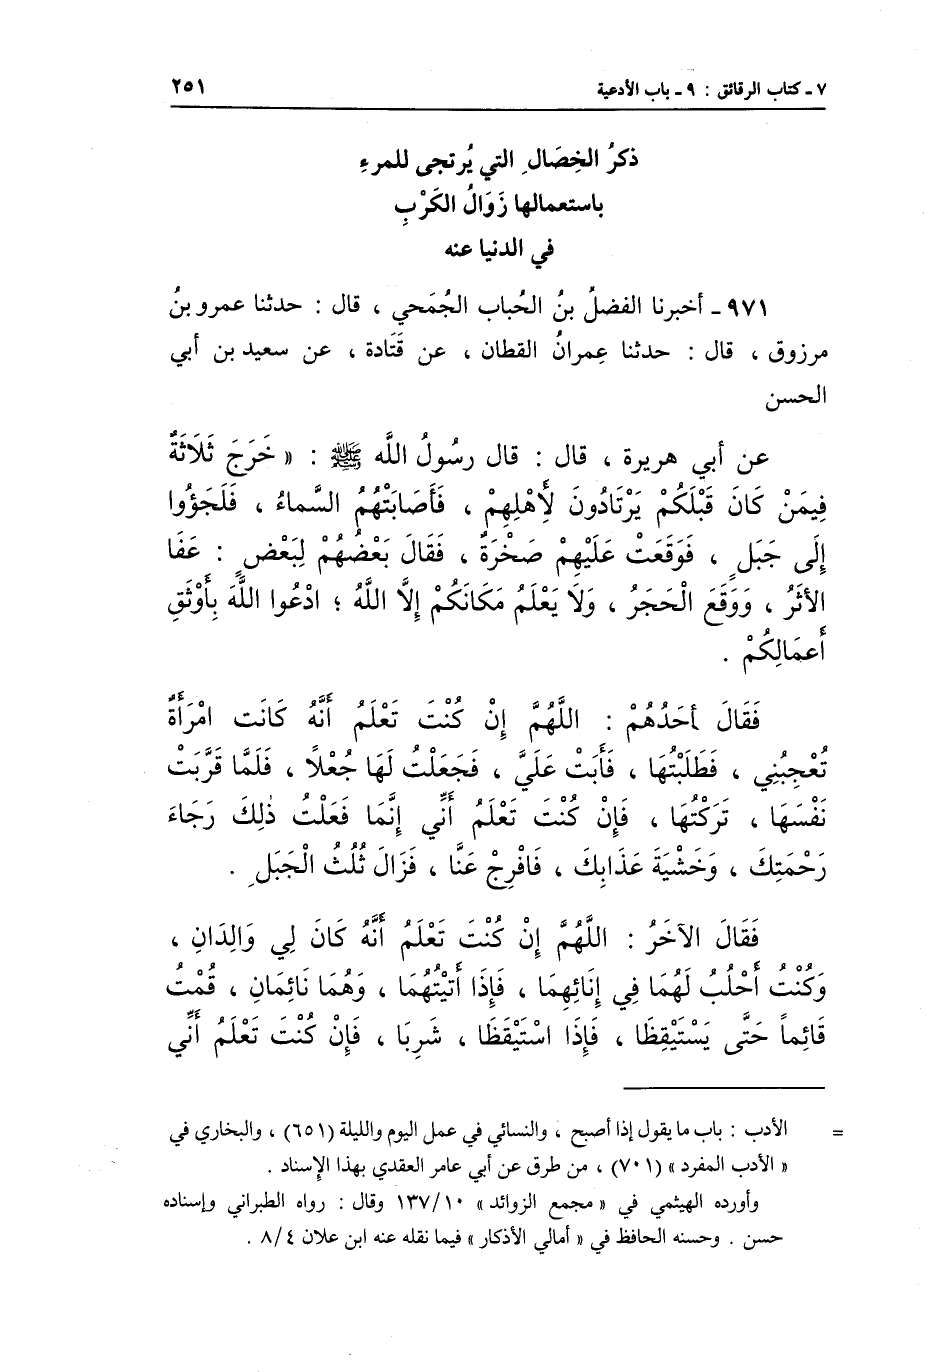 ٧ - كتاب الرقائق : ٩ - باب الأدعية ٢٥١
ذكرُ الخِصَالِ التي يُرتجى للمرءِ
باستعمالها زَوَالُ الكَرْبِ
في الدنيا عنه
٩٧١ - أخبرنا الفضلُ بنُ الحُباب الجُمَحي ، قال : حدثنا عمرو بنُ
مرزوق ، قال : حدثنا عِمرانُ القطان ، عن قَتَادة ، عن سعيد بن أبي
الحسن
عن أبي هريرة ، قال : قال رسُولُ اللَّه ﷺ : « خَرَجَ ثَلَاثَةٌ
فِيمَنْ كَانَ قَبْلَكُمْ يَرْتَادُونَ لأَهْلِهِمْ ، فَأَصَابَتْهُمُ السَّماءُ ، فَلَجَؤُوا
إِلَى جَبَلٍ ، فَوَقَعَتْ عَلَيْهِمْ صَخْرَةٌ ، فَقَالَ بَعْضُهُمْ لِبَعْضٍ : عَفَا
الأثَرُ ، وَوَقَعَ الْحَجَرُ ، وَلَا يَعْلَمُ مَكَانَكُمْ إِلَّا اللَّهُ ؛ ادْعُوا اللَّهَ بِأَوْثَقِ
أَعمَالِكُمْ .
فَقَالَ أحَدُهُمْ : اللَّهُمَّ إِنْ كُنْتَ تَعْلَمُ أَنَّهُ كَانَت امْرَأَةٌ
تُعْجِبُنِي ، فَطَلَبْتُهَا ، فَأَبَتْ عَلَيَّ ، فَجَعَلْتُ لَهَا جُعْلاً ، فَلَمَّا قَرَّبَتْ
نَفْسَهَا ، تَرَكْتُهَا ، فَإِنْ كُنْتَ تَعْلَمُ أَنِّي إِنَّمَا فَعَلْتُ ذٰلِكَ رَجَاءَ
رَحْمَتِكَ ، وَخَشْيَةَ عَذَابِكَ ، فَافْرِجْ عَنَّا ، فَزَالَ ثُلُثُ الْجَبَلِ .
فَقَالَ الآخَرُ : اللَّهُمَّ إِنْ كُنْتَ تَعْلَمُ أَنَّهُ كَانَ لِي وَالِدَانِ ،
وَكُنْتُ أَحْلُبُ لَهُمَا فِي إِنَائِهِمَا ، فَإِذَا أَتَيْتُهُمَا ، وَهُمَا نَائِمَانِ ، قُمْتُ
قَائِماً حَتَّى يَسْتَيْقِظَا ، فَإِذَا اسْتَيْقَظَا ، شَرِبَا ، فَإِنْ كُنْتَ تَعْلَمُ أَنِّي
= الأدب : باب ما يقول إذا أصبح ، والنسائي في عمل اليوم والليلة (٦٥١) ، والبخاري في
« الأدب المفرد » (٧٠١) ، من طرق عن أبي عامر العقدي بهذا الإسناد .
وأورده الهيثمي في « مجمع الزوائد » ١٣٧/١٠ وقال : رواه الطبراني وإسناده
حسن . وحسنه الحافظ في « أمالي الأذكار » فيما نقله عنه ابن علان ٨/٤ .